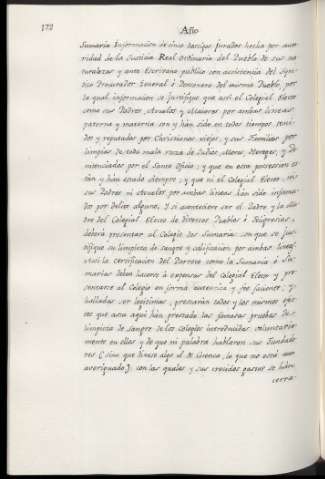 172
Año
Sumaria Informacion de cinco testigos jurados hecha por auto
ridad de la Justicia Real ordinaria del Pueblo de sus na
turalezas y ante Escrivano publico con assistencia del Syn
dico Procurador General ò Personero del mismo Pueblo, por
la qual informacion se justifique que assi el Colegial Electo
como sus Padres, Abuelos y Abuelas por ambas lineas
paterna y materna son y hàn sido en todos tiempos teni
dos y reputados por Christianos viejos, y sus Familias por
limpias de toda mala raza de Judios, Moros, Hereges, y Pe
nitenciados por el Santo Oficio; y que en esta possession es
tàn y hàn estado siempre; y que ni el Colegial Electo, ni
sus Padres ni Abuelos por ambas lineas hàn sido infama
dos por delito alguno. Y si aconteciere ser el Padre y la Ma
dre del Colegial Electo de Diversos Pueblos ò Feligresias,
deberà presentar al Colegio dos Sumarias con que se jus
tifique su limpieza de sangre y calificacion por ambas lineas.
Assi la certificacion del Parroco como la Sumaria ò Su
marias deben hacerse à expensas del Colegial Electo y pre
sentarse al Colegio en forma autentica y fee faciente; y
halladas ser legitimas, prestaràn todos y los mismos efec
tos que hasta aqui hàn prestado las famosas pruebas de
limpieza de sangre de los Colegios introducidas voluntaria
mente en ellos y de que ni palabra hablaron sus Fundado
res (sino que fuesse algo el de Cuenca, lo que no està aun
averiguado); con las quales y sus crecidos gastos se hàn
cerra-